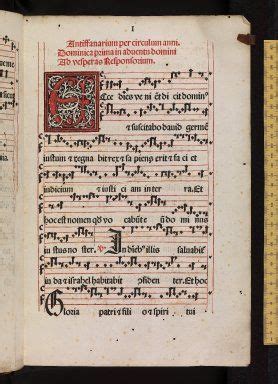 I
Antiffanarium per circulum anni.
Dominica prima in adventu domini
Ad vesperas Responsorium.
Ecce dies ve ni ēt di cit domin⁹
et suscitabo david germē
iustum et regna bit rex sa piens erit et fa ci et
iudicium et iusti ci am in ter ra. Et
hoc est nomen qd vo cabūt eū do mi nus
iustus no ster. V. In dieb⁹ illis salvabit᷑
iu da et israhel habitabit cōfiden ter. Et hoc
Gloria patri et fili o et spiri tui